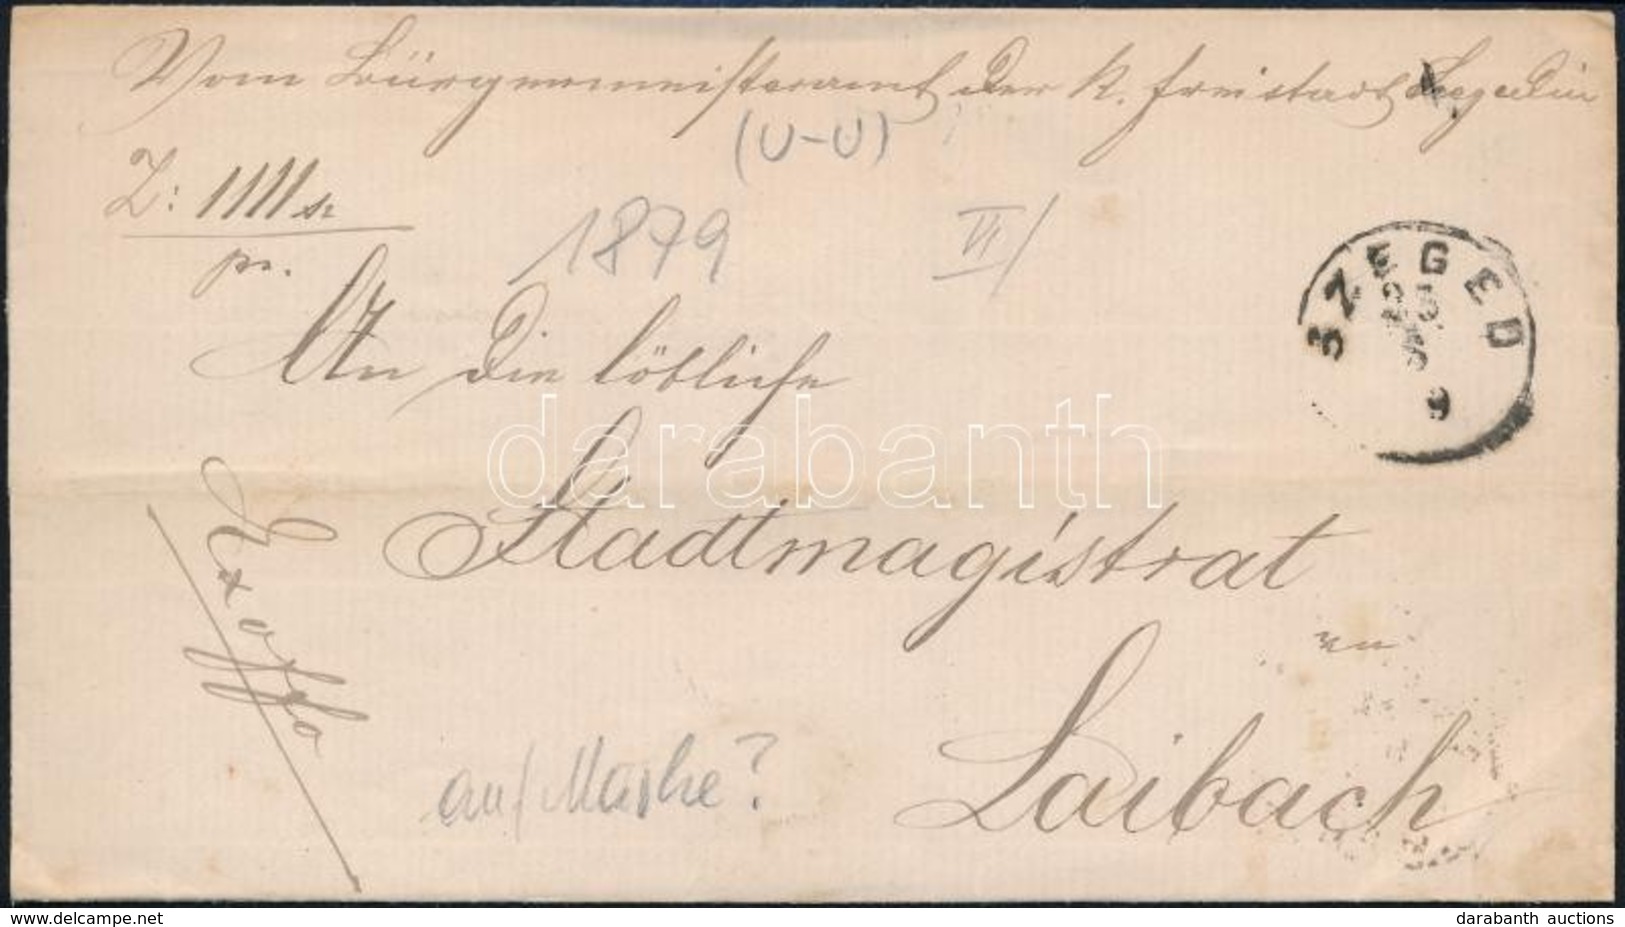 Vom Bürgermeisteramt der k. Freistadt Szegedin
(U-U)
Z: 1111
pr.
1879
VI/
SZEGED
9
An die löbliche
Stadtmagistrat
in
Laibach
Ex offo
darabanth
www.delcampe.net
darabanth auctions